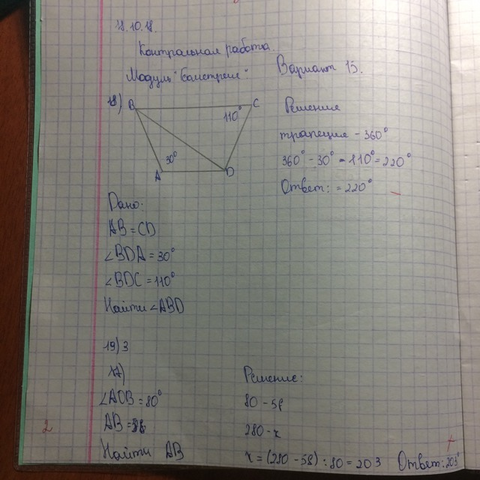 18.10.18.
Контрольная работа
Модуль "Геометрия"
Вариант 15.
18)
B
C
110°
30°
A
D
Решение
трапеция - 360°
360° - 30° - 110° = 220°
Ответ: = 220°
Дано:
AB = CD
∠BDA = 30°
∠BDC = 110°
Найти ∠ABD
19) 3
17)
∠AOB = 80°
AB = 58
Найти AB
Решение:
80 - 58
280 - x
x = (280 - 58) : 80 = 203
Ответ: 203
2